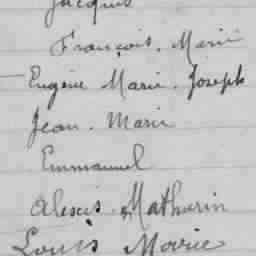 Jacques
François. Marie
Eugène Marie. Joseph
Jean. Marie
Emmanuel
Alexis Mathurin
Louis Marie